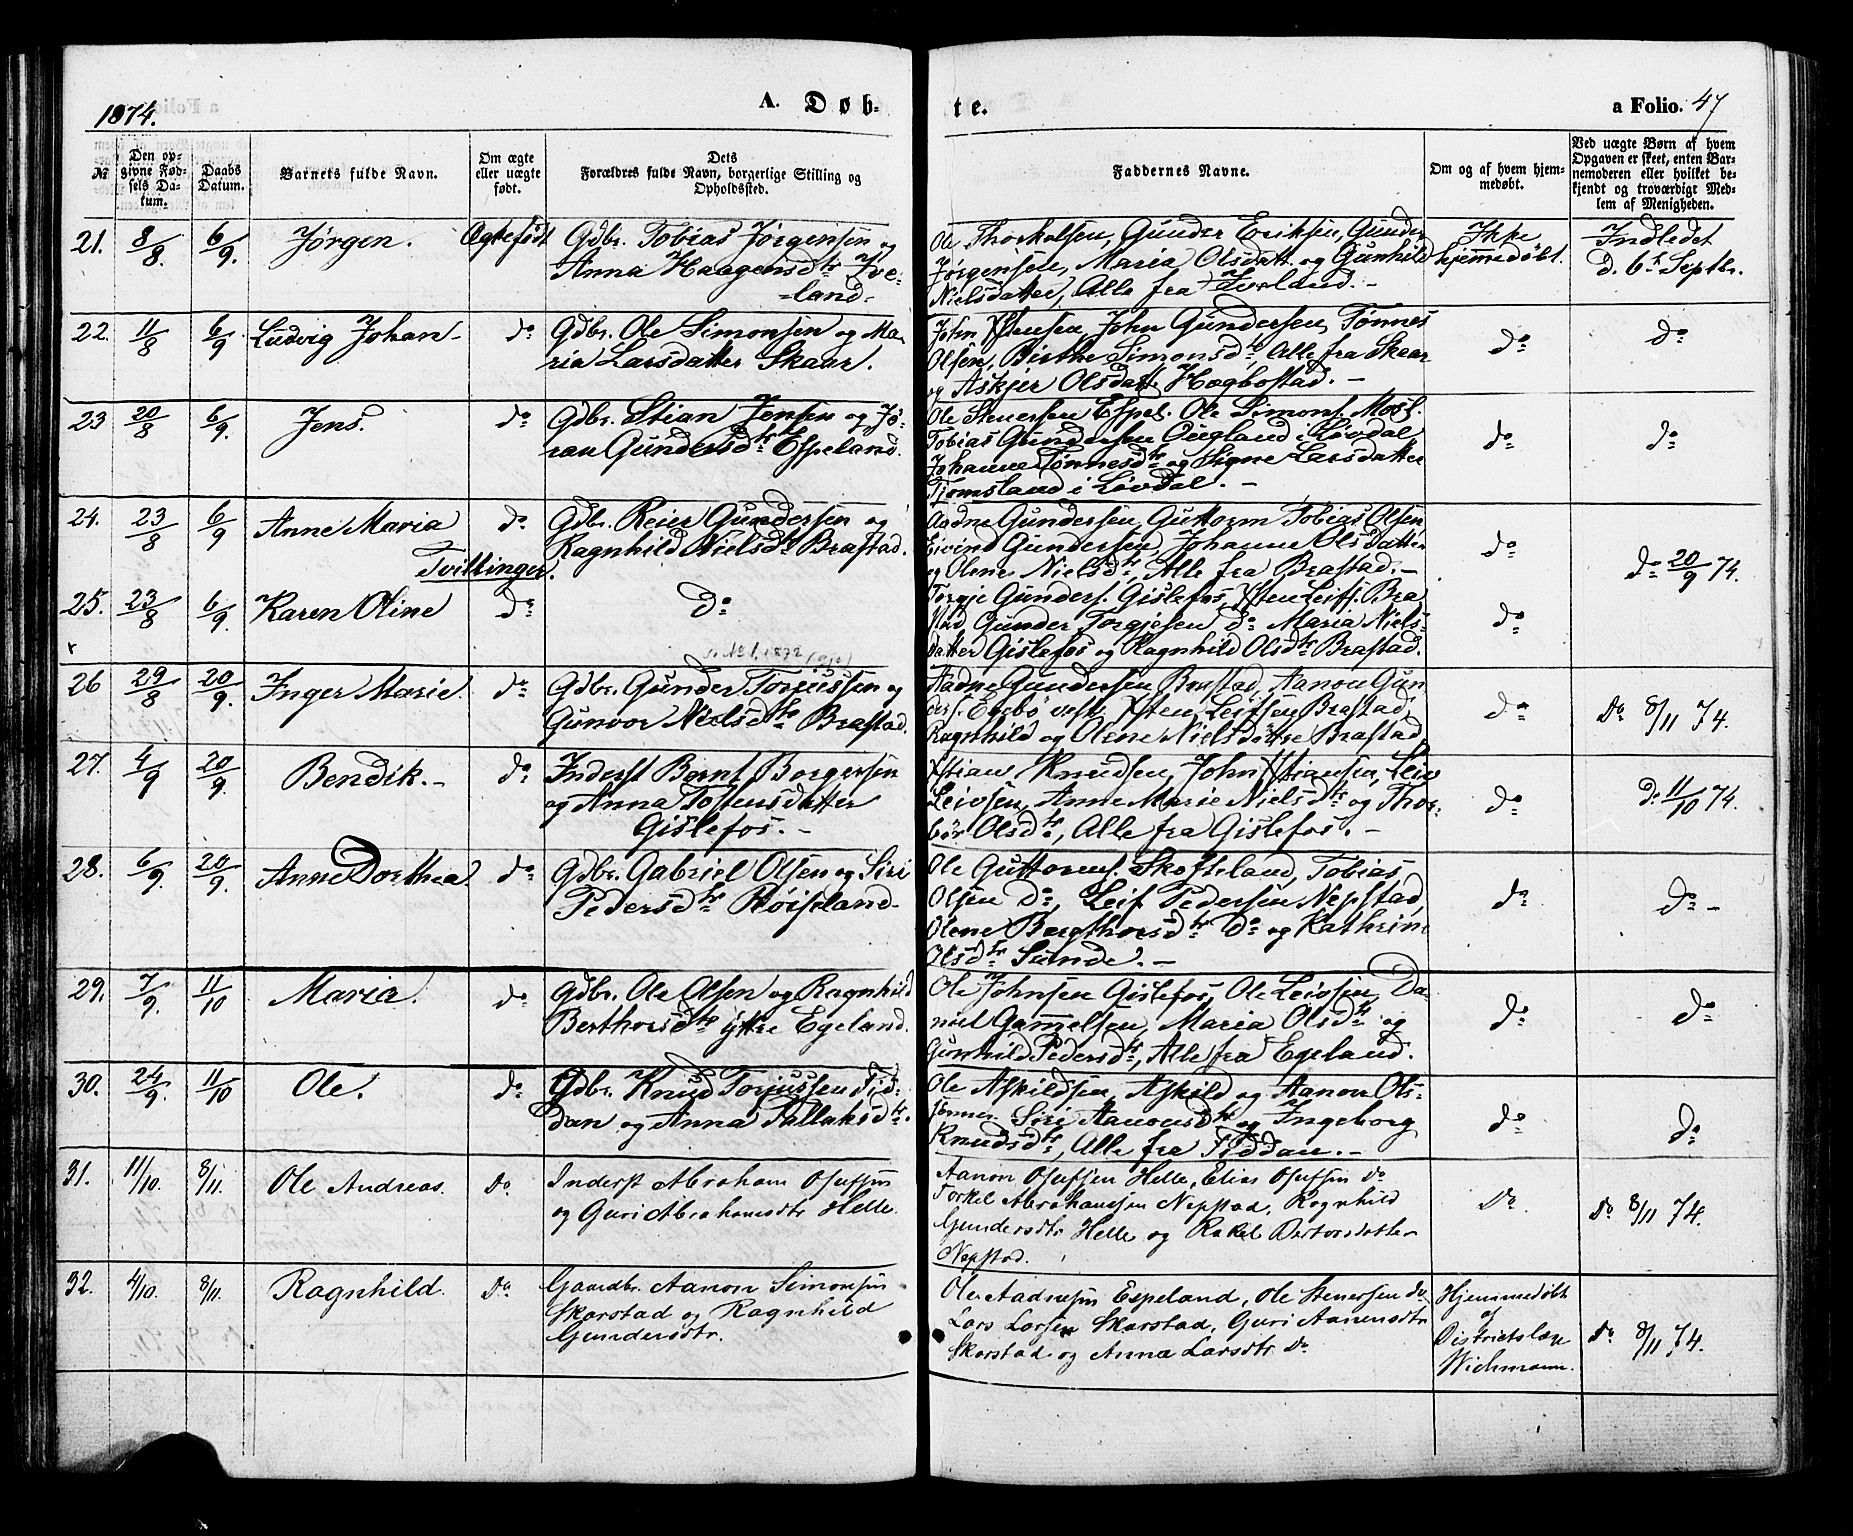 1874.
A. Døb-
te.
a Folio. 47
№
Den op-
givne Fød-
sels Da-
tum.
Daabs
Datum.
Barnets fulde Navn.
Om ægte
eller uægte
født.
Dets
Forældres fulde Navn, borgerlige Stilling og
Opholdssted.
Faddernes Navne.
Om og af hvem hjem-
medøbt.
Ved uægte Børn af hvem
Opgaven er skeet, enten Bar-
nemoderen eller hvilket be-
kjendt og troværdigt Med-
lem af Menigheden.
21. 8/8. 6/9. Jørgen. Ægtefødt
Gdbr. Tobias Jørgensen og
Anna Haagensdtr Ive-
=land-
Ole Thorkelsen, Gunder Eriksen, Gunder
Jørgensen, Maria Olsdatt. og Gunhild
Nielsdatter, Alle fra Iveland.-
Ikke
hjemmedøbt.
Indledet
d. 6t Septbr.
22. 11/8 6/9 Ludvig Johan- do
Gdbr. Ole Simonsen og Ma-
ria Larsdatter Skaar.
John Xstensen, John Gundersen, Tønnes
Olsen, Birthe Simonsdtr, Alle fra Skaar
og Askjer Olsdatt. Hægbostad.-
do
do
23 20/8 6/9. Jens. do
Gdbr. Stian Jensen og Jø-
ran Gundersdtr Espeland.
Ole Stenersen Espel. Ole Simons. Mosl.
Tobias Gundersen Øugland i Løvdal
Johanne Tønnesdtr og Signe Larsdatter
Tjomsland i Løvdal.-
do
do
24. 23/8 6/9 Anne Maria do
Gdbr. Reier Gundersen og
Ragnhild Nielsdtr Brastad.
Tvillinger.
Aadne Gundersen, Guttorm Tobias Olsen,
Eivind Gundersen, Johanne Olsdatter
og Olene Nielsdtr, Alle fra Brastad.-
do
do 20/9 74.
25. 23/8 6/9. Karen Oline do
do
Torgje Gunders. Gislefos, Xsten Leifs. Bra
stad Gunder Torgjesen do Maria Niels-
datter Gislefos og Ragnhild Olsdtr Brastad.
do
No 1, 1872
26 29/8 20/9. Inger Marie do
Gdbr. Gunder Torjussen og
Gunvor Nielsdtr Brastad.
Aadne Gundersen Brastad, Aanon Gun
ders. Eegbø vestr. Xsten Leifsen Brastad,
Ragnhild og Olene Nielsdøttre Brastad
do
Do 8/11 74.
27. 4/9 20/9. Bendik.- do
Inderst Bernt Borgersen
og Anna Tostensdatter
Gislefos.-
Xstian Knudsen, John Xstiansen, Leiv
Leivsen, Anne Marie Nielsdtr og Thor-
bør Olsdtr, Alle fra Gislefos.-
do
do 11/10 74.
28. 6/9. 20/9. Anne Dorthea. do
Gdbr. Gabriel Olsen og Siri
Pedersdtr Høiseland-
Ole Guttorms. Skofteland, Tobias
Olsen do, Leif Pedersen Nepstad,
Olene Bergthorsdtr do og Kathrine
Olsdtr Sunde.-
do
do-
29. 7/9. 11/10 Maria. do
Gdbr. Ole Olsen og Ragnhild
Berthorsdtr ytre Egeland.
Ole Johnsen Gislefos, Ole Leivsen, Da-
niel Gammelsen, Maria Olsdtr og
Gunhild Pedersdtr, Alle fra Egeland.
do
do
30. 24/9. 11/10 Ole. do
Gdbr. Knud Torjussen Fid-
dan og Anna Tallaksdtr.
Ole Askildsen, Askild og Aanon Ols-
sønner Siri Aanonsdtr og Ingeborg
Knudsdtr, Alle fra Fiddan.-
do
do
31. 11/10. 8/11. Ole Andreas. Do
Inderst Abraham Osufsen
og Guri Abrahamsdtr Helle.
Aanon Osufsen Helle, Elias Osufsen do
Torkel Abrahamsen Nepstad, Ragnhild
Gundersdtr Helle og Rakel Bertorsdatter
Nepstad.
Do.
Do 8/11 74.
32. 4/10. 8/11. Ragnhild. Do
Gaardbr. Aanon Simonsen
Skarstad og Ragnhild
Gundersdtr.
Ole Aadnesen Espeland, Ole Stenersen do
Lars Larsen Skarstad, Guri Aanensdtr
Skarstad og Anna Larsdtr Do
Hjemmedøbt
af
Districtslæge
Wichmann.
Do 8/11 74.